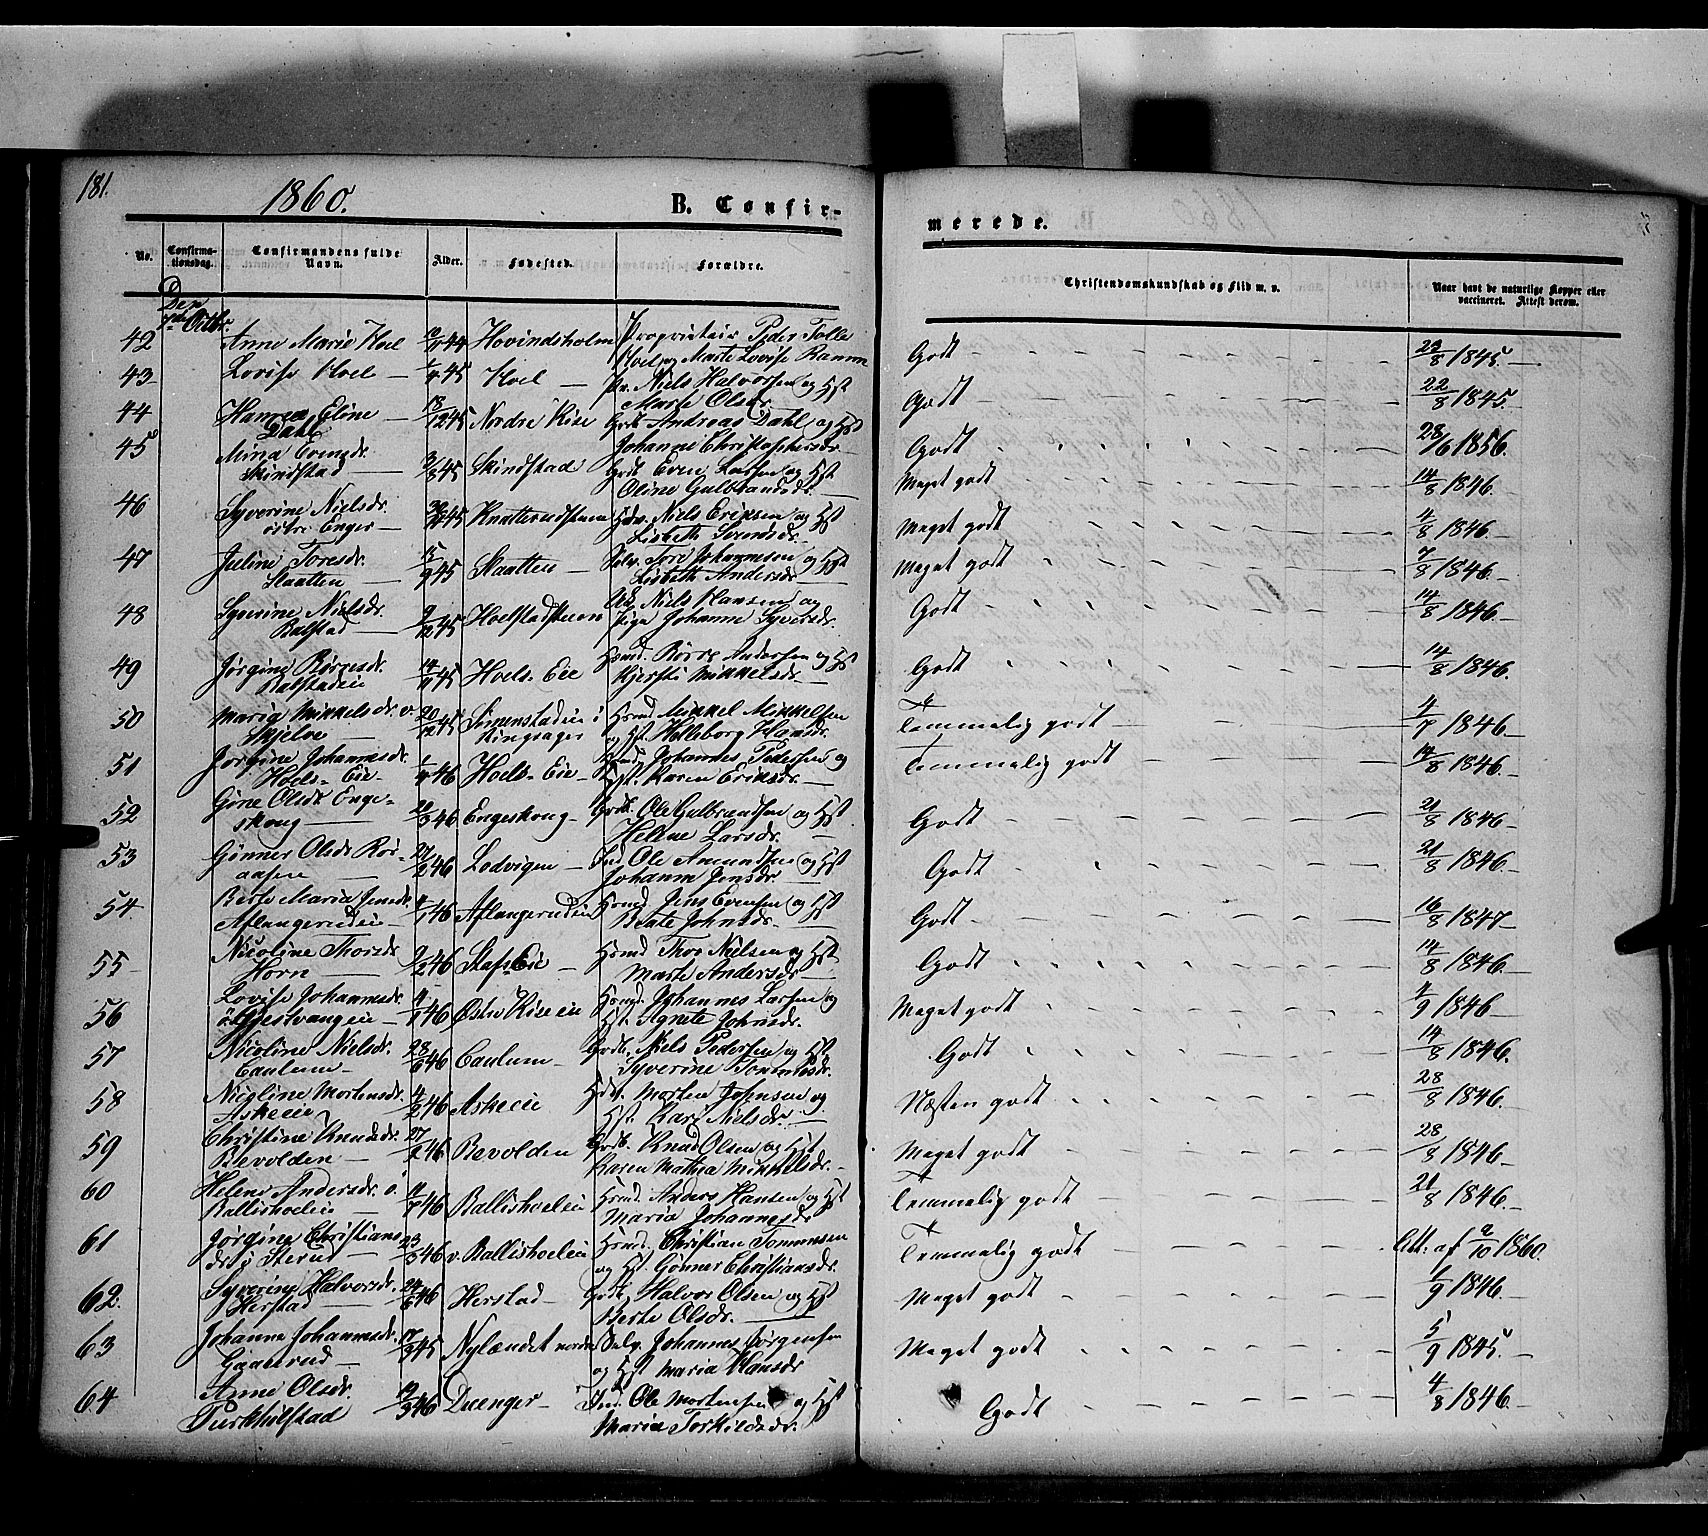 181.
1860.
B. Confir-
merede.
No.
Confirma-
tionsdag.
Confirmandens fulde
Navn.
Alder.
Fødested.
Forældre.
Christendomskundskab og Flid m. v.
Naar havt de naturlige Kopper eller
vaccineret. Attest derom.
Den
7de Octbr.
42 Anne Marie Hoel 44 Hovindsholm Proprietair Peder Tolle
Hoel og Marte Lovise Ramm Godt 23/8 1845.
43 Lovise Hoel 45 Hoel Niels Halvorsen og Hst
Marte Olsdr. Godt 22/8 1845.
44 Hanna Eline
Dahl 18/12 45 Nordre Rise Grdb. Andreas Dahl og Hst
Johanne Christophersdr. Godt 28/6 1856.
45 Mina Evensdr.
Skindstad 3/8 45 Skindstad Grdb. Even Larsen og Hst
Oline Gulbrandsdr. Meget godt 14/8 1846.
46 Syverine Nielsdr.
østre Enger 45 Niels Eriksen og Hst
Lisbeth Meget godt 4/8 1846.
47 Juline Toresdr.
Slaatten 15/9 45 Slaatten Selv. Tore Johannesen og Hst
Lisbeth Andersdr. Meget godt 7/8 1846.
48 Syverine Nielsdr.
Balstad 9/12 45 Niels Hansen og
Pige Johanne Syversdr. Godt 14/8 1846.
49 Jørgine Børgesdr.
Balstadeie 14/11 45 Hoels Eie Hsmd. Børge Andersen og Hst
Kjersti Mikkelsdr. Godt 14/8 1846.
50 Maria Mikkelsdr. v.
Skjelve 20/12 45 Simenstadeie i
Ringsager Hsmd. Mikkel Mikkelsen
og Hst. Holleborg Hansdr. Temmelig godt 1846.
51 Jørgine Johannesdr.
Hoels Eie 46 Hoels Eie Hsmd. Johannes Pedersen og
Hst. Karen Eriksdr. Temmelig godt 14/8 1846.
52 Gine Olsdr. Enge-
skoug 20/3 46 Engeskoug Grdb. Ole Gulbrandsen og Hst
Helene Larsdr. Godt 21/8 1846
53 Gønner Olsdr. Ror-
aasen 21/2 46 Lodvigen Ind. Ole Amundsen og Hst
Johanne Jensdr. Godt 21/8 1846.
54 Berte Maria Jensdr.
Aflangerudeie 46 Aflangerudeie Hsmd. Jens Evensen og Hst
Beate Johnsdr. Godt 16/8 1847
55 Nicoline Thorsdr.
Horn 9/2 46 Stafs Eie Hsmd. Thor Nielsen og Hst
Marte Andersdr. Godt 14/8 1846.
56 Lovise Johannesdr.
ø. Gjestvangeie 46 Østre Riseeie Hsmd. Johannes Larsen og
Hst. Agnete Johnsdr. Meget godt 4/9 1846
57 Nicoline Nielsdr.
Caulum 28/6 46 Caulum Grdb. Niels Pedersen og Hst
Syverine Tommesdr. Godt 14/8 1846.
58 Nicoline Mortensdr.
Askeeie 4/2 46 Askeeie Hdv. Morten Johnsen og
Hst. Kari Nielsdr. Næsten godt 28/8 1846.
59 Christine Knudsdr.
Bevolden 27/2 46 Bevolden Grdb. Knud Olsen og Hst
Karen Mathea Mikkelsdr. Meget godt 28/8 1846
60 Helene Andersdr. v.
Ballishoeleie 46 Ballishoeleie Hsmd. Anders Hansen og Hst
Maria Johannesdr. Temmelig godt 21/8 1846.
61 Jørgine Christians
dr. Sterud 23/3 46 v. Ballishoeleie Hsmd. Christian Tommesen
og Hst. Gønner Christiansdr. Temmelig godt Att. af 2/10 1860.
62. Syverine Halvorsdr.
Herstad 24/6 46 Herstad Grdb. Halvor Olsen og Hst
Berte Olsdr. Meget godt 1/9 1846.
63 Johanne Johannesdr.
Gaalerud 17/3 45 Nylændet nordre Selv. Johannes Jørgensen
og Hst Maria Hansdr Meget godt 5/9 1845.
64 Anne Olsdr.
Turkhilstad 19/3 46 Duenger Ind. Ole Mortensen og Hst
Maria Torkildsdr. Godt 4/8 1846.